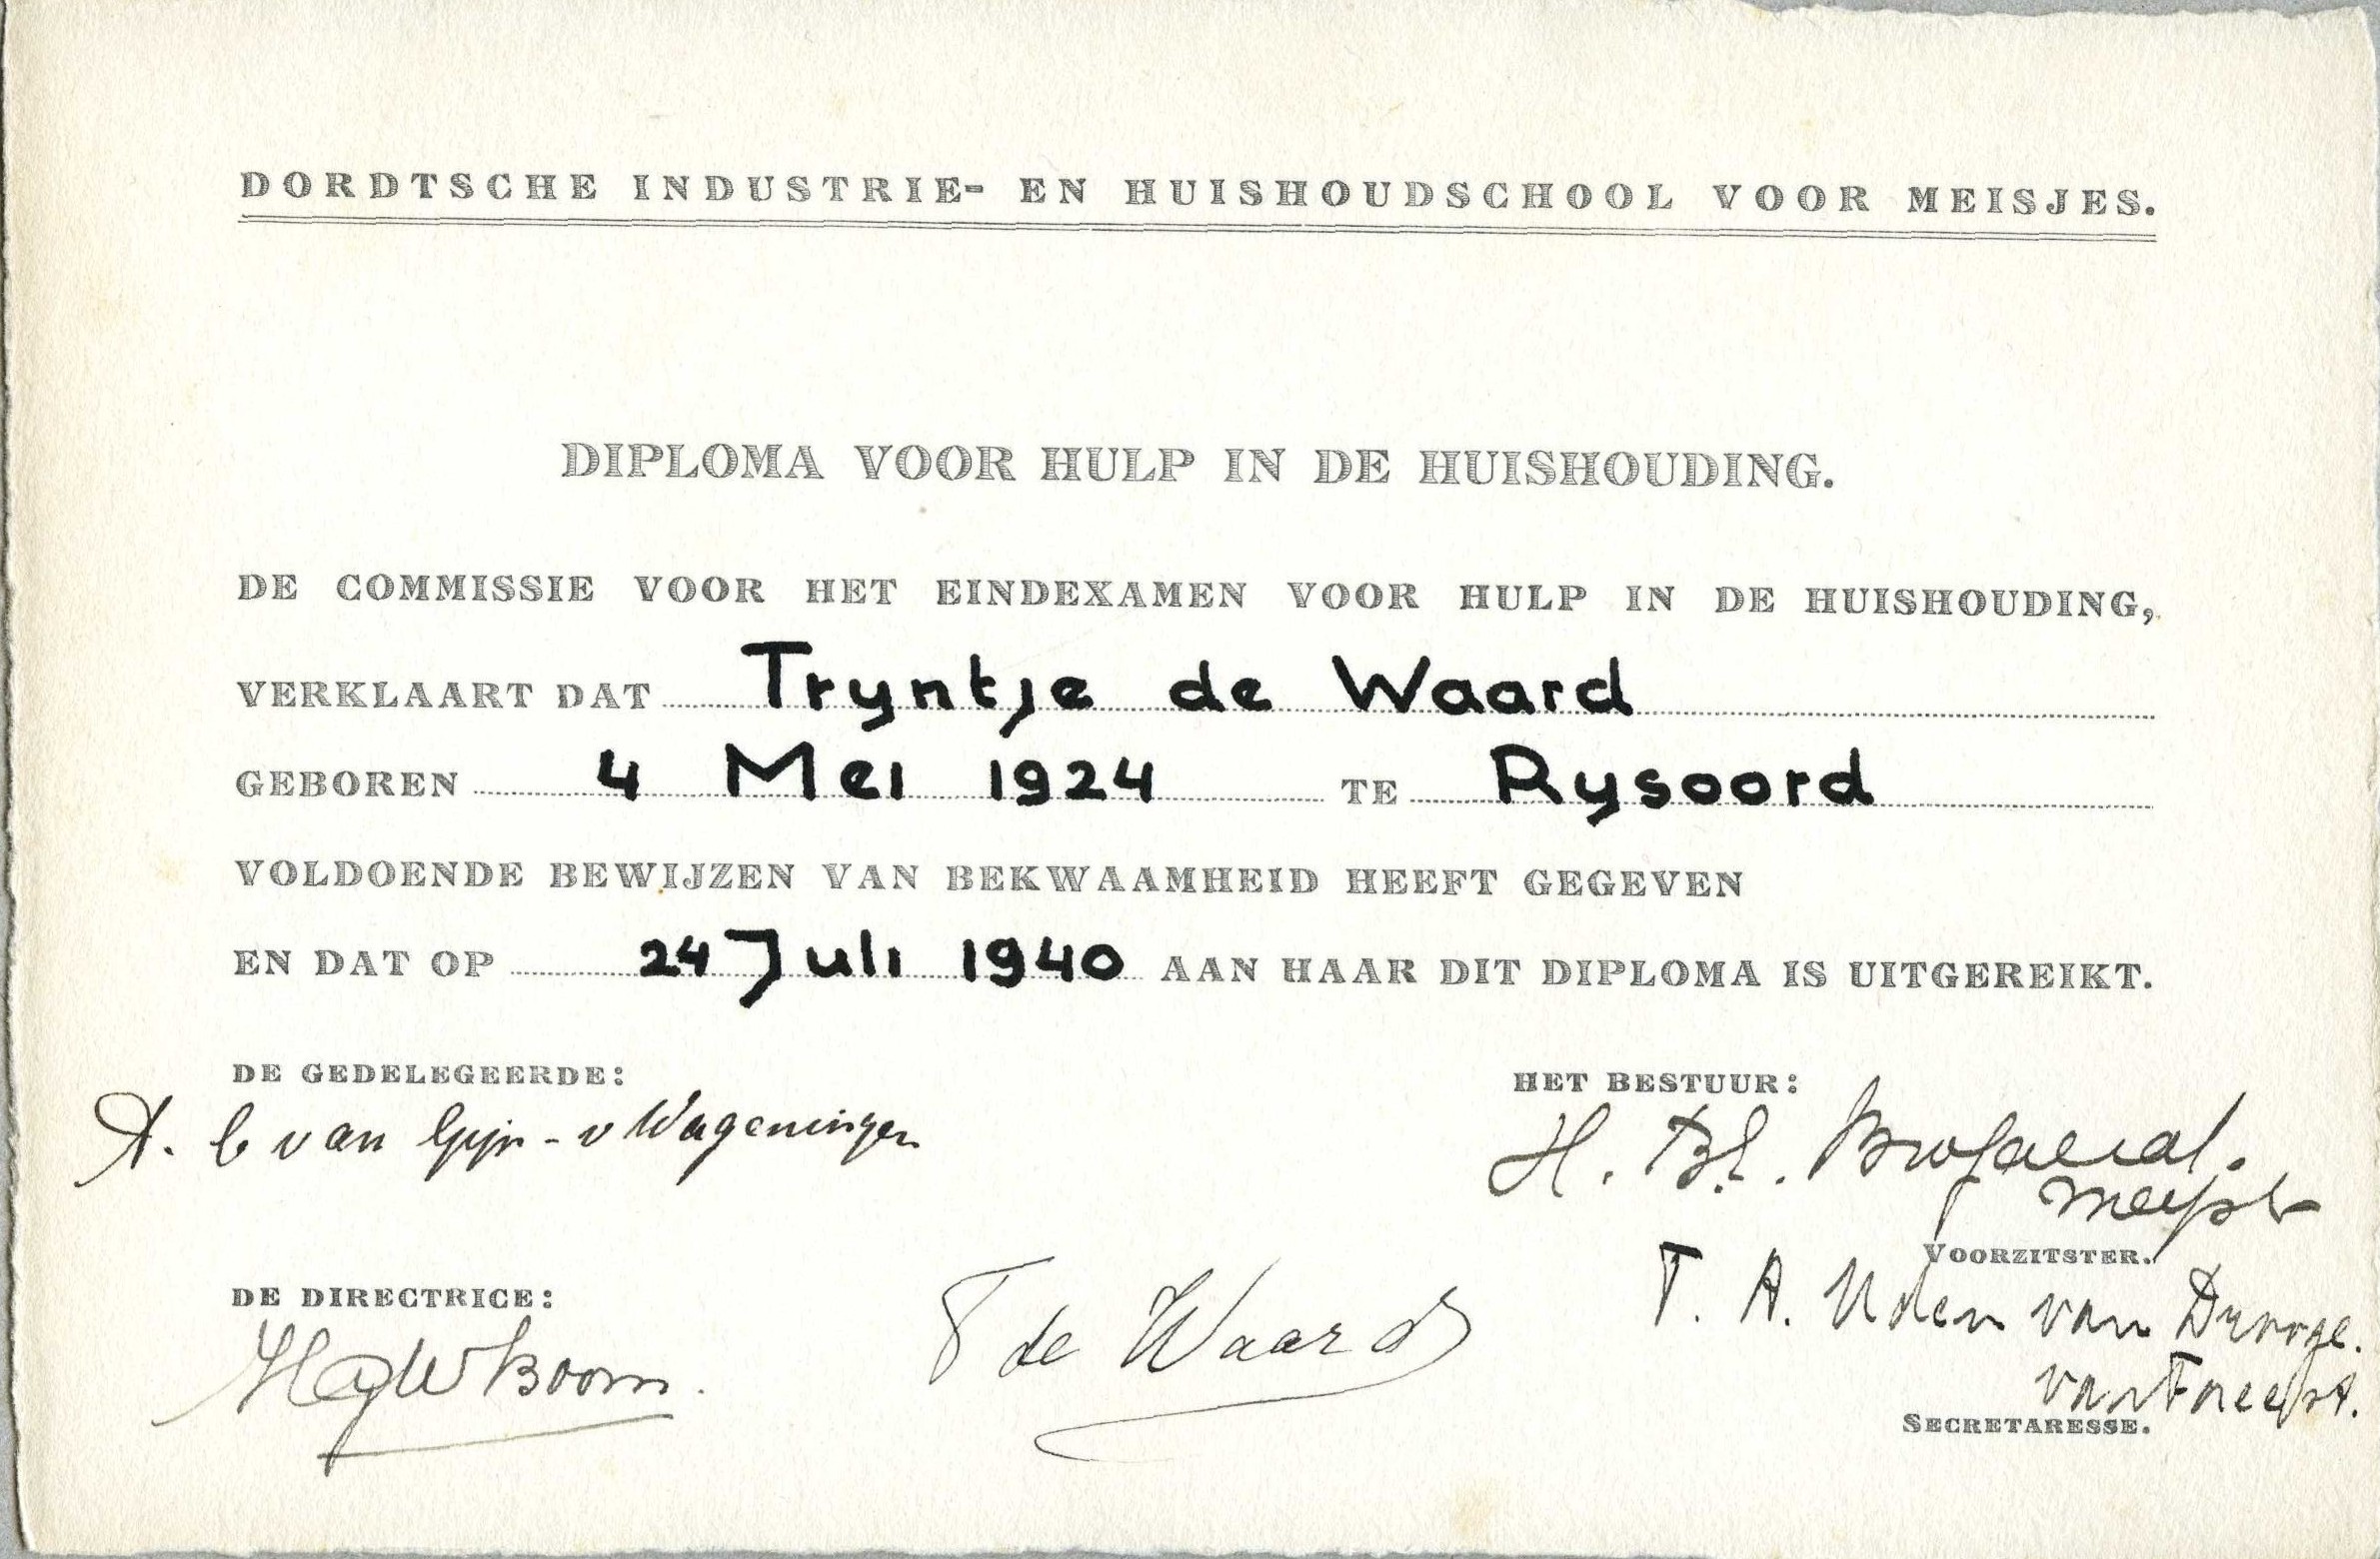 DORDTSCHE INDUSTRIE- EN HUISHOUDSCHOOL VOOR MEISJES.
DIPLOMA VOOR HULP IN DE HUISHOUDING.
DE COMMISSIE VOOR HET EINDEXAMEN VOOR HULP IN DE HUISHOUDING,
VERKLAART DAT Tryntje de Waard
GEBOREN 4 Mei 1924 TE Rysoord
VOLDOENDE BEWIJZEN VAN BEKWAAMHEID HEEFT GEGEVEN
EN DAT OP 24 Juli 1940 AAN HAAR DIT DIPLOMA IS UITGEREIKT.
DE GEDELEGEERDE:
A. C van Gijn - v Wageningen
HET BESTUUR:
H.
VOORZITSTER.
DE DIRECTRICE:
Boom.
T de Waard
T. A. van
SECRETARESSE.